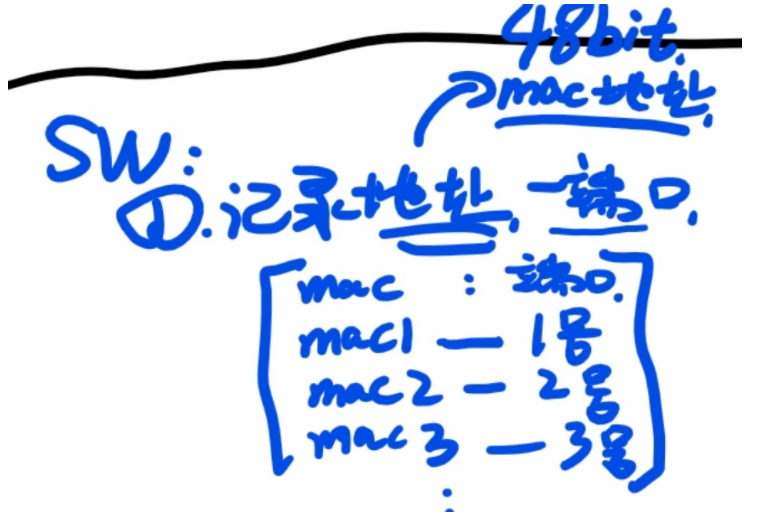 48bit.
mac地址.
SW:
①.记录地址. 一端口.
mac : 端口.
mac1 — 1号
mac2 — 2号
mac3 — 3号
⋮